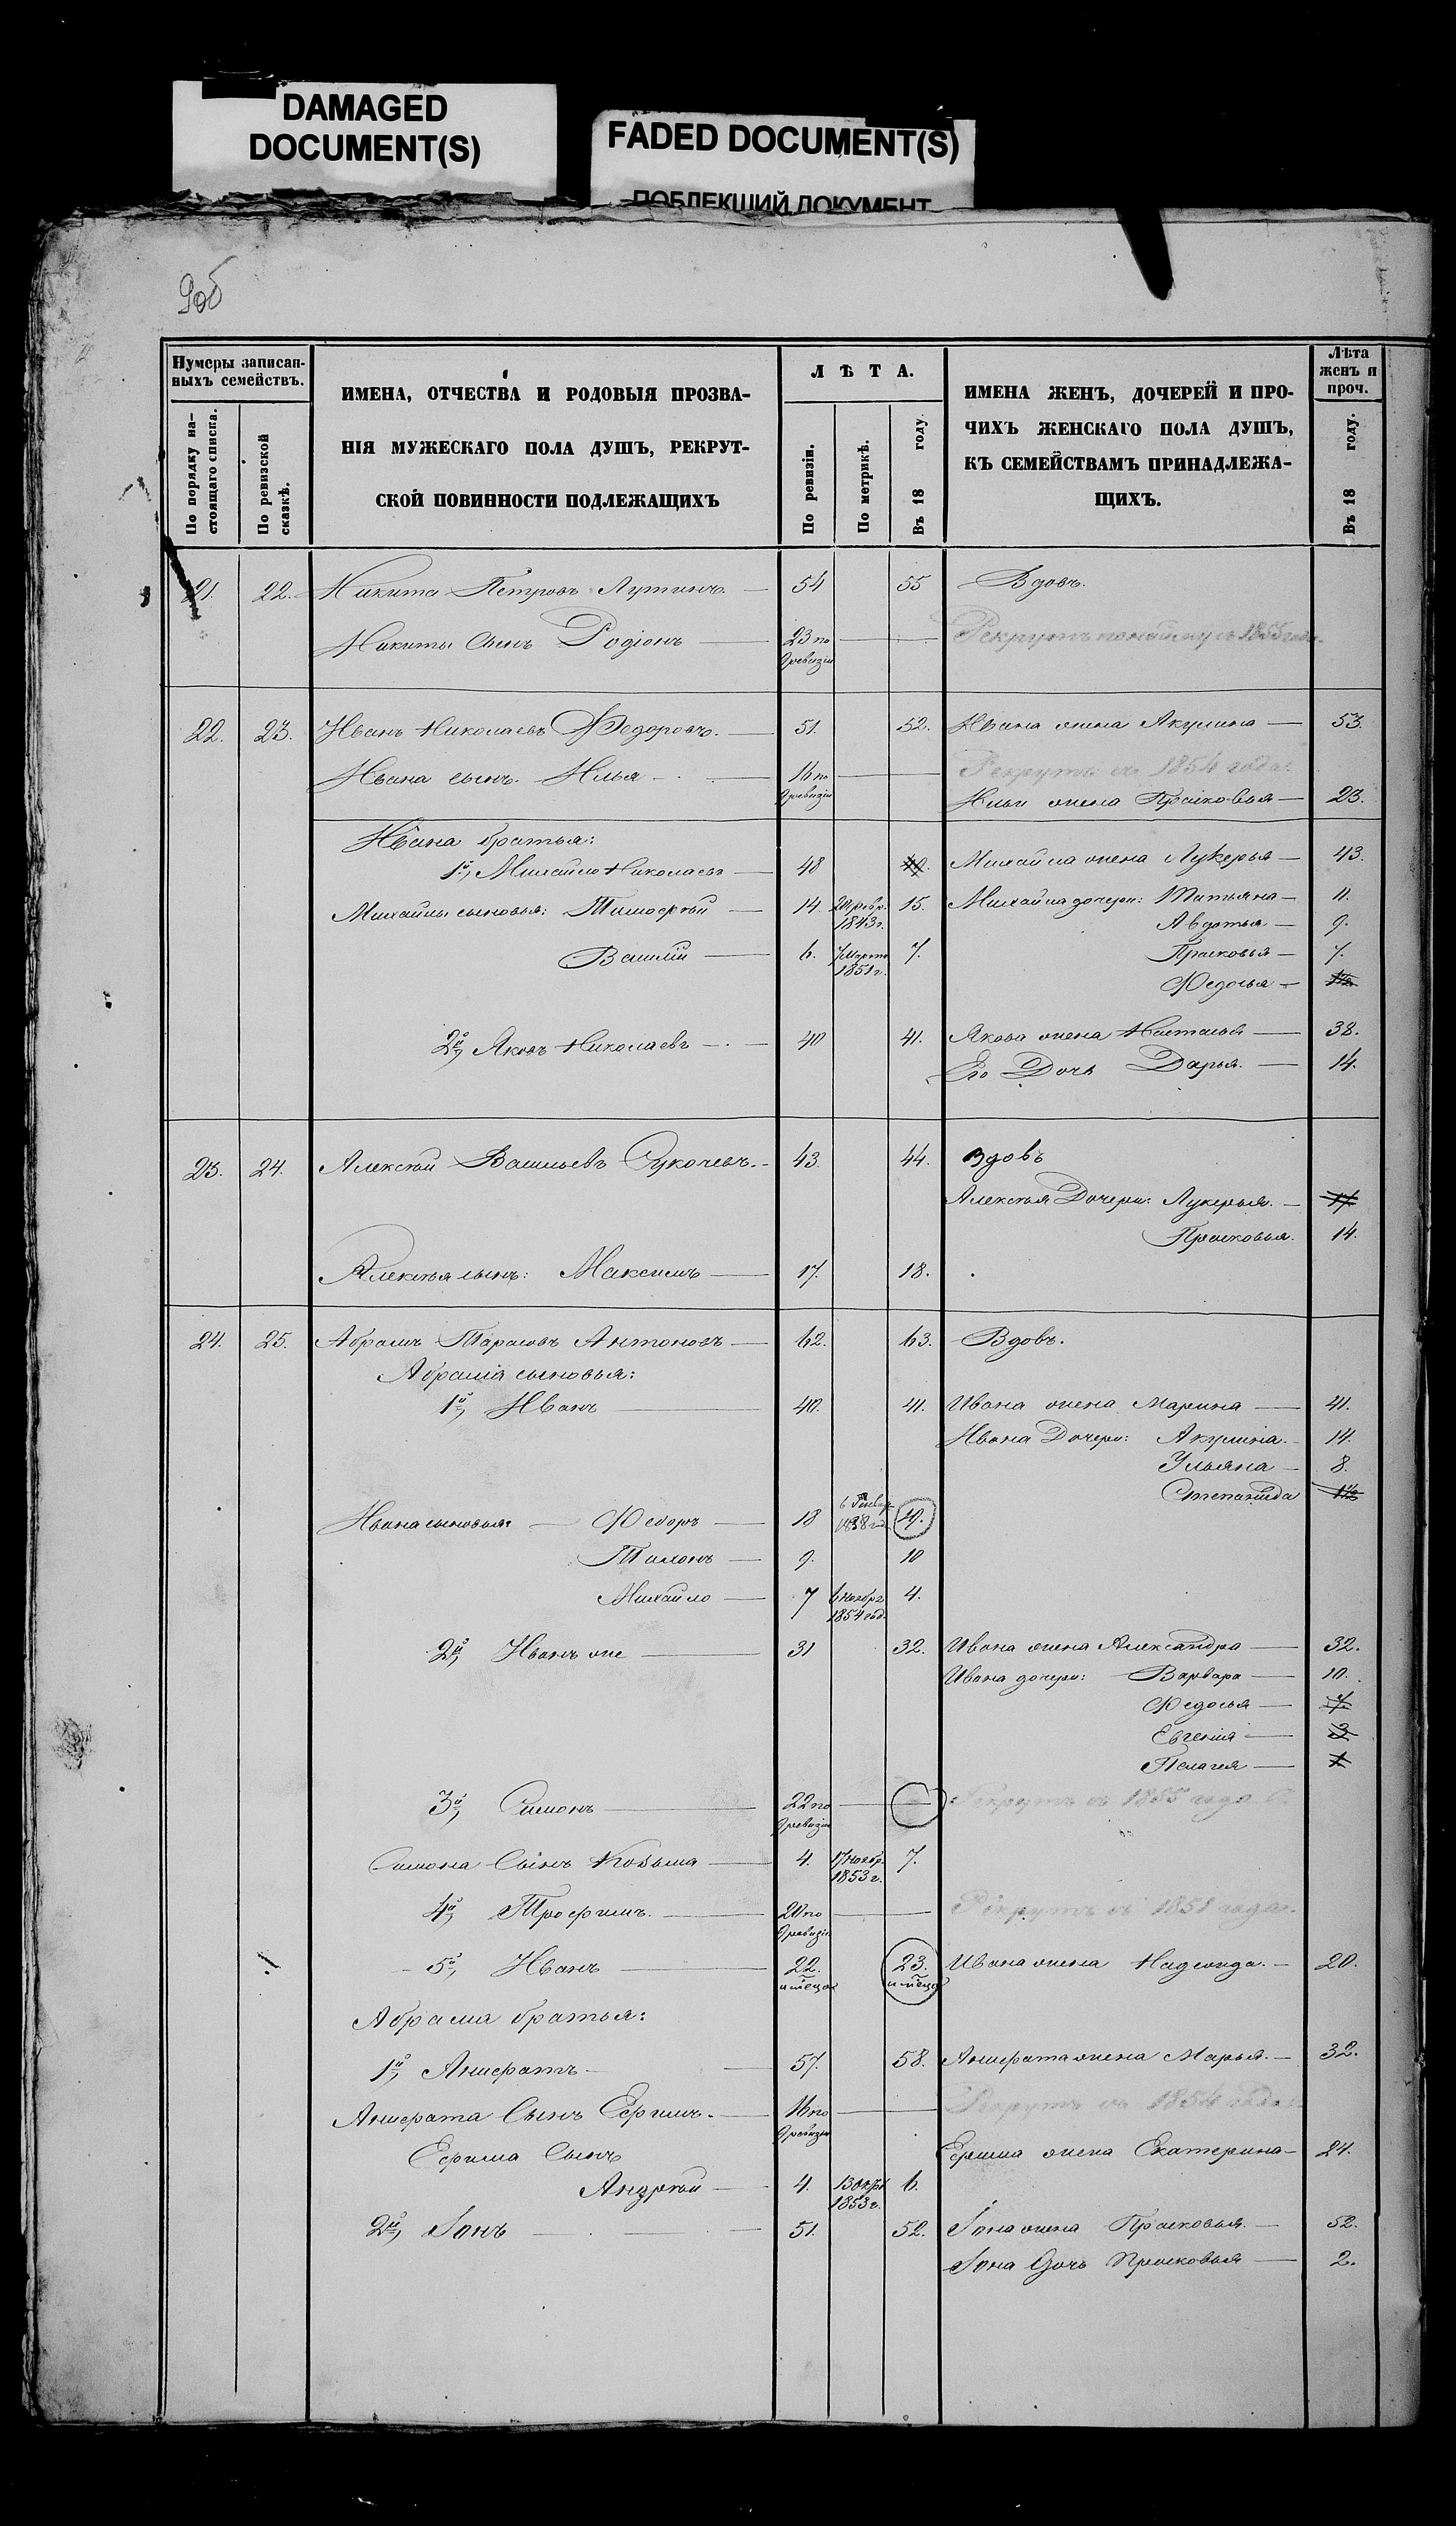 DAMAGED
DOCUMENT(S)
FADED DOCUMENT(S)
ПОБЛЕКШИЙ ДОКУМЕНТ
Нумеры записан-
ныхъ семействъ.
По порядку на-
стоящаго списка.
По ревизской
сказкѣ.
ИМЕНА, ОТЧЕСТВА И РОДОВЫЯ ПРОЗВА-
НІЯ МУЖЕСКАГО ПОЛА ДУШЪ, РЕКРУТ-
СКОЙ ПОВИННОСТИ ПОДЛЕЖАЩИХЪ
ЛѢТА.
По ревизіи.
По метрикѣ.
Въ 18 году.
ИМЕНА ЖЕНЪ, ДОЧЕРЕЙ И ПРО-
ЧИХЪ ЖЕНСКАГО ПОЛА ДУШЪ,
КЪ СЕМЕЙСТВАМЪ ПРИНАДЛЕЖА-
ЩИХЪ.
Лѣта
женъ и
проч.
Въ 18 году.
21. 22. Никита Петровъ 54 55 Вдовъ.
Никиты сынъ Родіонъ 23 по 9 ревизіи Рекрутъ 1855 года.
22. 23. Иванъ Николаевъ Федоровъ. 51. 52. Ивана жена Акулина 53.
Ивана сынъ Илья 16 по 9 ревизіи Рекрутъ съ 1854 года.
Ильи жена Прасковья 23.
Ивана братья:
1й, Михайло Николаевъ 48 Михайла жена Лукерья 43.
Михайлы сыновья: Тимофѣй 14. 1843 г. 15. Михайла дочери: Татьяна 11.
Авдотья 9.
Василій 6. 7 Марта 1851 г. 7. Прасковья 7.
Федосья
2й, Яковъ Николаевъ 40 41. Якова жена Настасья 38.
Его Дочь Дарья. 14.
23. 24. Алексѣй Васильевъ 43. 44. Вдовъ
Алексѣя Дочери: Лукерья.
Прасковья. 14.
Алексѣя сынъ: Максимъ 17. 18.
24. 25. Абрамъ Тарасовъ Антоновъ 62. 63. Вдовъ.
Абрама сыновья:
1й, Иванъ 40. 41. Ивана жена Марина 41.
Ивана Дочери: Акулина. 14.
Ульяна 8.
Степанида
Ивана сыновья: Федоръ 18 6 Январ. 1838 год.
9. 10
Михайло 7 6 Ноября 1854 год. 4.
2й, Иванъ же 31 32. Ивана жена Александра 32.
Ивана дочери: Варвара 10.
Федосья
Евгенія
Пелагея
3й, Симонъ 22 по 9 ревизіи Рекрутъ съ 1855 года.
Симона Сынъ Козьма 4. 17 Ноябр. 1853 г. 7.
4й, Трофимъ. 20 по 9 ревизіи Рекрутъ съ 1851 года.
5й, Иванъ 22. 23. Ивана жена Надежда. 20.
Абрама братья:
1й, 57. 58. жена Марья. 32.
Сынъ Ефимъ. 16 по 9 ревизіи Рекрутъ съ 1854 года
Ефима Сынъ Ефима жена Екатерина 24.
Андрей 4. 1853 г. 6.
2й, Іонъ 51. 52. Іона жена Прасковья. 52.
Іона Дочь Прасковья 2.